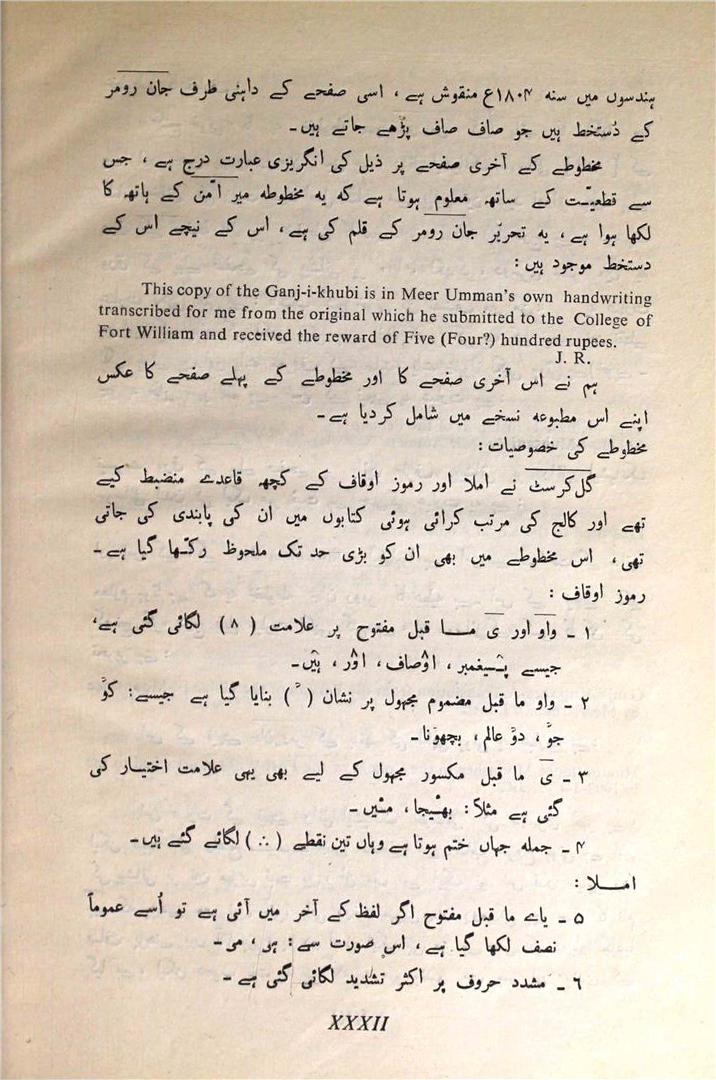 ہندسوں میں سنہ ۱۸۰۴ع منقوش ہے ، اسی صفحے کے داہنی طرف جان رومر
کے دستخط ہیں جو صاف صاف پڑھے جاتے ہیں۔
مخطوطے کے آخری صفحے پر ذیل کی انگریزی عبارت درج ہے ، جس
سے قطعیّت کے ساتھ معلوم ہوتا ہے کہ یہ مخطوطہ میر امّن کے ہاتھ کا
لکھا ہوا ہے ، یہ تحریر جان رومر کے قلم کی ہے ، اس کے نیچے اس کے
دستخط موجود ہیں :
This copy of the Ganj-i-khubi is in Meer Umman's own handwriting
transcribed for me from the original which he submitted to the College of
Fort William and received the reward of Five (Four?) hundred rupees.
J. R.
ہم نے اس آخری صفحے کا اور مخطوطے کے پہلے صفحے کا عکس
اپنے اس مطبوعہ نسخے میں شامل کردیا ہے۔
مخطوطے کی خصوصیات :
گل کرسٹ نے املا اور رموز اوقاف کے کچھ قاعدے منضبط کیے
تھے اور کالج کی مرتب کرائی ہوئی کتابوں میں ان کی پابندی کی جاتی
تھی ، اس مخطوطے میں بھی ان کو بڑی حد تک ملحوظ رکّھا گیا ہے۔
رموز اوقاف :
۱ ۔ واو اور ی مــا قبل مفتوح پر علامت ( ۸ ) لگائی گئی ہے ،
جیسے پیغمبر ، اوصاف ، اور ، ہیں۔
۲ ۔ واو ما قبل مضموم مجہول پر نشان ( ) بنایا گیا ہے جیسے : کو
جو ، دو عالم ، بچھونا۔
۳ ۔ ی ما قبل مکسور مجہول کے لیے بھی یہی علامت اختیــار کی
گئی ہے مثلاً : بھیجا ، میں ۔
۴ ۔ جملہ جہاں ختم ہوتا ہے وہاں تین نقطے ( ∴ ) لگائے گئے ہیں۔
امــلا :
۵ ۔ یاے ما قبل مفتوح اگر لفظ کے آخر میں آئی ہے تو اُسے عموماً
نصف لکھا گیا ہے ، اس صورت سے : ہی ، می۔
۶ ۔ مشدد حروف پر اکثر تشدید لگائی گئی ہے ۔
XXXII